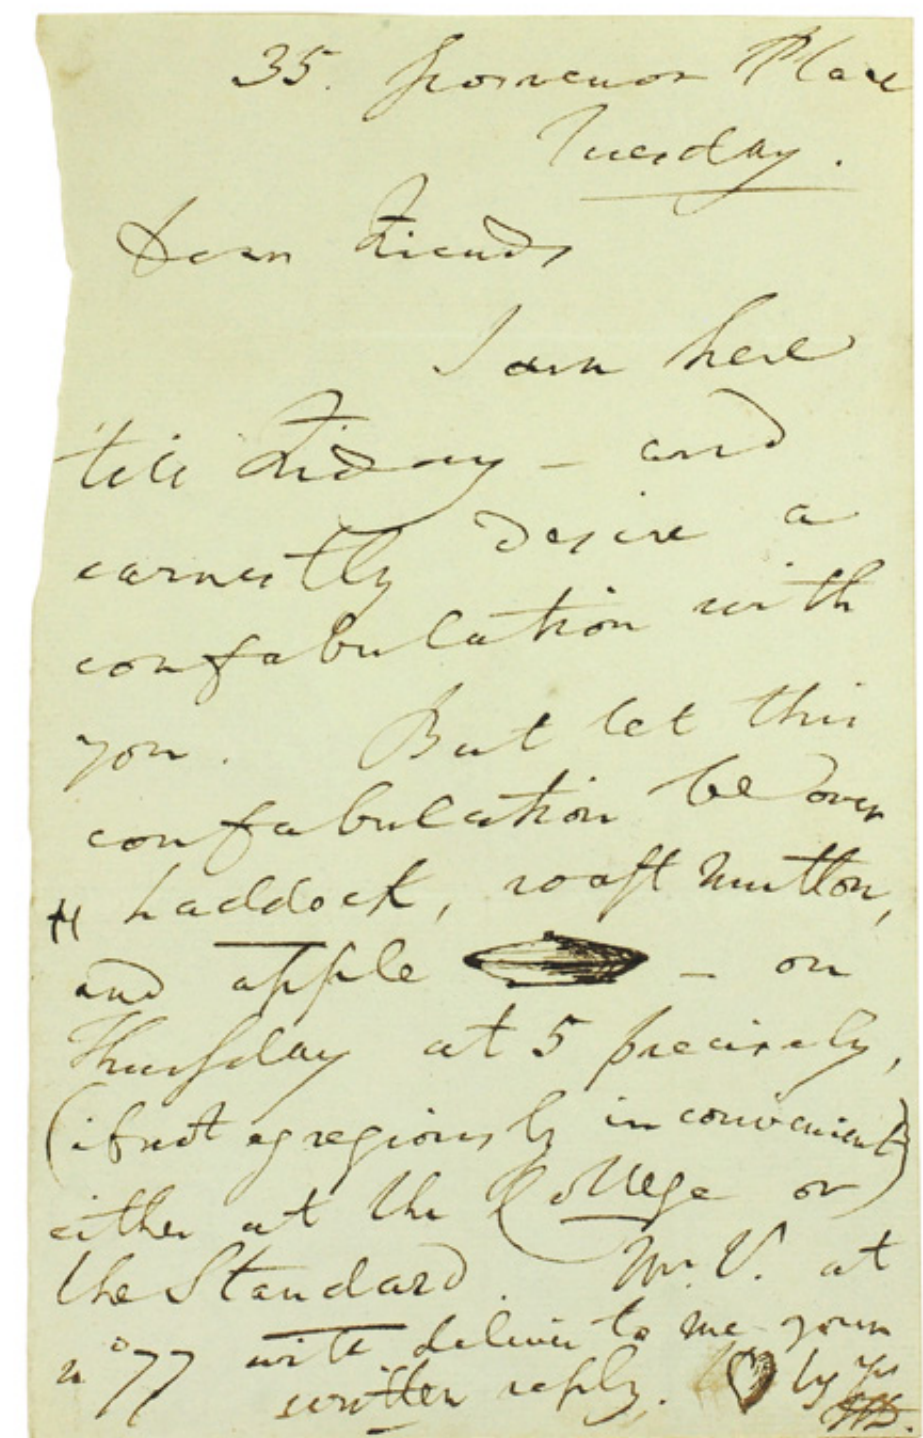 35. Grosvenor Place
Tuesday.
Dear Friends
I am here
till Friday – and
earnestly desire a
confabulation with
you. But let this
confabulation be over
haddock, roast mutton,
and apple – on
Thursday at 5 precisely,
(if not egregiously inconvenient)
either at the College or
the Standard. Mr. V. at
no 77 will deliver to me your
written reply. by yrs